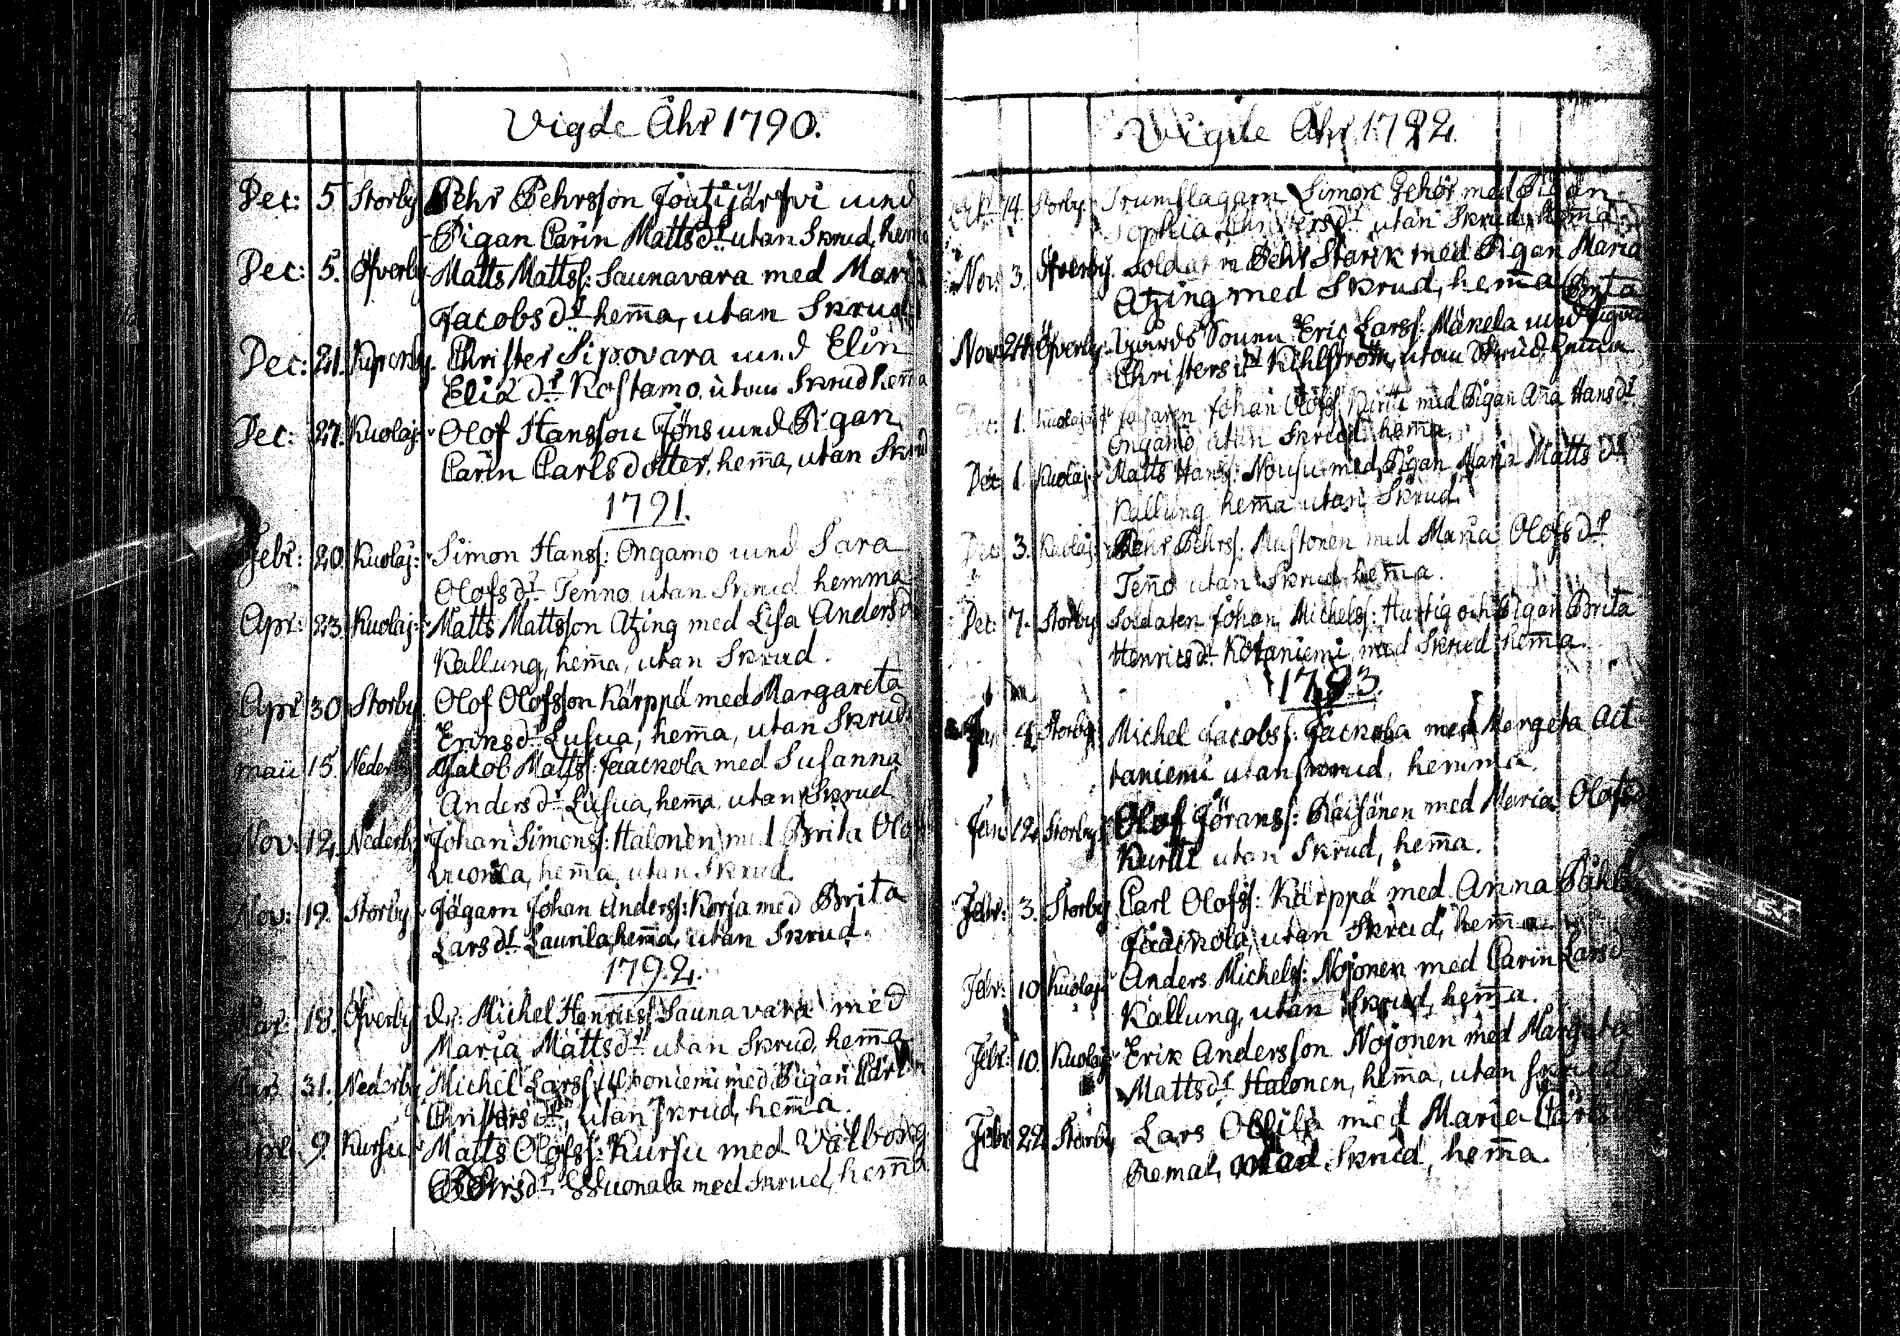 Vigde Åhr 1790.
Dec: 5 Storby Pehr Pehrsson Joutijärfvi med
Pigan Carin Mattsdr utan Skrud, hema
Dec: 5. Öfverby Matts Mattss: Saunavara med Mari
Jacobsdr hem̄a, utan Skrud
Dec: 21. Christer Sipovara med Elin
Eliædr Kostamo, utan Skrud hem̄a
Dec: 27. Kuolaj: Olof Hansson Jöns med Pigan
Carin Carlsdotter, hem̄a, utan Skrud
1791.
Febr: 20 Kuolaj: Simon Hanss: Ongamo med Sara
Olofsdr Tenno utan Skrud hemma
Apr: 23 Kuolaj: Matts Mattsson Atzing med Lisa Andersd
Kallung, hem̄a, utan Skrud.
Apr 30 Storby Olof Olofsson Kärppä med Margareta
Eriksdr Lusua, hem̄a, utan Skrud
Maii 15. Nederby Jacob Matts: Jaackola med Susanna
Andersdr Lusua, hem̄a, utan Skrud
Nov: 12. Nederby Johan Simonss: Halonen med Brita Olo
hem̄a, utan Skrud.
Nov: 19. Storby Jägarn Johan Anderss: Korja med Brita
Larsdr Laurila, hem̄a, utan Skrud.
1792.
18. Öfverby dr: Michel Henricss Saunavara med
Maria Mattsdr utan Skrud, hem̄a
31. Nederby Michel Larss: med Pigan Carin
Christersdr, utan Skrud, hem̄a.
9. Kursu Matts Olofss: Kursu med Valborg
Wuonala med Skrud, hem̄a
Vigde Åhr 1792.
14. Storby Trumslagarn Simon Gehör med Pigan
Sophia Christersdr utan Skrud, hem̄a
Nov: 3. Öfverby. Soldaten Pehr Stark med Pigan Maria
Atzing med Skrud, hem̄a
Nov: 24. Öfverby. Gårds Sonen Eric Larss: Mäkelä med Pigan Brita
Christersdr Kihlström, utan Skrud, hemma
Dec: 1. Kuolaj: Johan Olofss: Kurtti med Pigan An̄a Hansdr
Ongamo utan Skrud, hem̄a.
Dec 1. Kuolaj: Matts Hanss: Nousu med Pigan Maria Mattsdr
Kallung hem̄a utan Skrud.
Dec 3. Kuolaj: Pehr Pehrss: Mustonen med Maria Olofsdr
Ten̄o utan Skrud, hem̄a.
Dec: 7. Storby Soldaten Johan Michelss: Hurtig och Pigan Brita
Henricsdr Kotaniemi, med Skrud hem̄a.
1793.
Jan 4. Storby Michel Jacobss: Jackola med Margeta Ait
taniemi utan skrud, hemma.
Jan: 12. Storby Olof Jöranss: Räisänen med Maria Olofsd
Kurtti utan Skrud, hem̄a.
Febr: 3. Storby Carl Olofss: Kärppä med Anna Påhls
Jaackola, utan Skrud, hem̄a
Febr: 10. Kuolaj: Anders Michelss: Nojonen med Carin Larsd
Kallung, utan Skrud, hem̄a.
Febr: 10. Kuolaj: Erik Andersson Nojonen med Margeta
Mattsdr Halonen, hem̄a, utan Skrud
Febr 22. Storby Lars Ollila med Maria
Skrud, hem̄a.